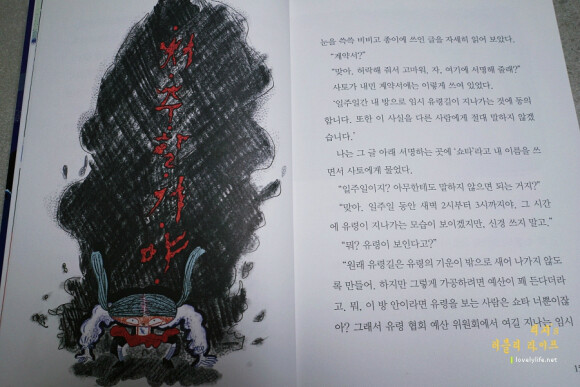 저주할거야.
눈을 쓱쓱 비비고 종이에 쓰인 글을 자세히 읽어 보았다.
“계약서?”
“맞아, 허락해 줘서 고마워. 자, 여기에 서명해 줄래?”
사토가 내민 계약서에는 이렇게 쓰여 있었다.
‘일주일간 내 방으로 임시 유령길이 지나가는 것에 동의
합니다. 또한 이 사실을 다른 사람에게 절대 말하지 않겠
습니다.’
나는 그 글 아래 서명하는 곳에 ‘쇼타’라고 내 이름을 쓰
면서 사토에게 물었다.
“일주일이지? 아무한테도 말하지 않으면 되는 거지?”
“맞아. 일주일 동안 새벽 2시부터 3시까지야. 그 시간
에 유령이 지나가는 모습이 보이겠지만, 신경 쓰지 말고.”
“뭐? 유령이 보인다고?”
“원래 유령길은 유령의 기운이 밖으로 새어 나가지 않도
록 만들어. 하지만 그렇게 가공하려면 예산이 꽤 든다더라
고. 뭐, 이 방 안이라면 유령을 보는 사람은 쇼타 너뿐이잖
아? 그래서 유령 협회 예산 위원회에서 여길 지나는 임시
러블리 라이프
lovelylife.net